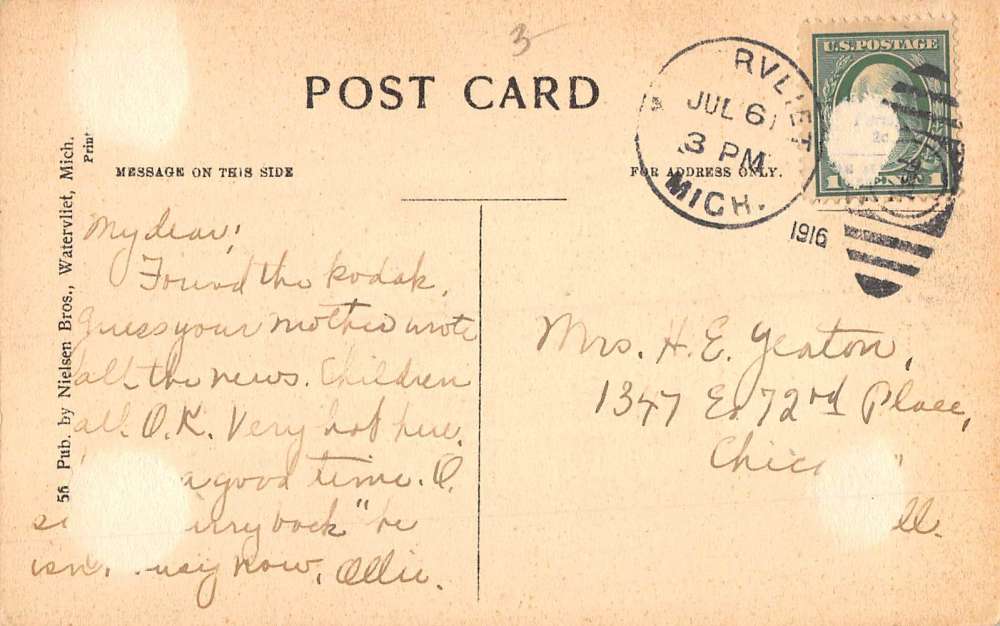 3
POST CARD
U.S.POSTAGE
RVLIET
JUL 6
3 PM
MICH.
1916
1 CENT 1
56 Pub. by Nielsen Bros., Watervliet, Mich.
MESSAGE ON THIS SIDE
FOR ADDRESS ONLY.
My dear;
Found the kodak.
Guess your mother wrote
all the news. Children
all O.K. Very hot here.
a good time. O.
back" he
now. Ollie.
Mrs. H. E. Yeaton,
1347 E. 72nd Place,
Ill.